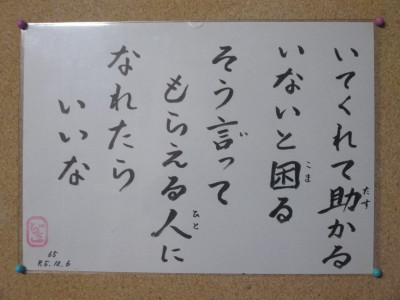 いてくれて助かる
いないと困る
そう言って
もらえる人に
なれたら
いいな
65
R5.12.6